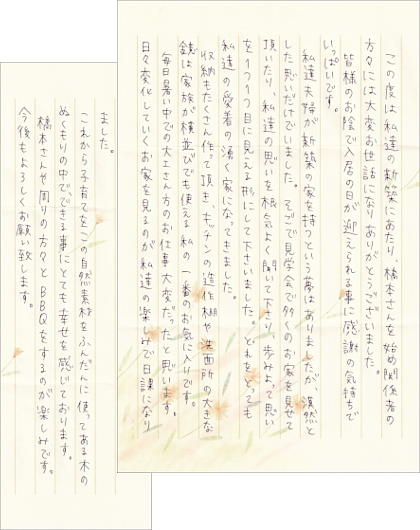 この度は私達の新築にあたり、橋本さんを始め関係者の
方々には大変お世話になりありがとうございました。
皆様のお陰で入居の日が迎えられる事に感謝の気持ちで
いっぱいです。
私達夫婦が新築の家を持つという夢はありましたが、漠然と
した思いだけでいました。そこで見学会で多くのお家を見せて
頂いたり、私達の思いを根気よく聞いて下さり、歩みよって思い
を1つ1つ目に見える形にして下さいました。どれをとっても
私達の愛着の湧く家になってきました。
収納もたくさん作って頂き、キッチンの造作棚や洗面所の大きな
鏡は家族が横並びでも使える私の一番のお気に入りです。
毎日暑い中での大工さん方のお仕事大変だったと思います。
日々変化していくお家を見るのが私達の楽しみで日課になり
ました。
これから子育てをこの自然素材をふんだんに使ってある木の
ぬくもりの中でできる事にとても幸せを感じております。
橋本さんや周りの方々とBBQをするのが楽しみです。
今後もよろしくお願い致します。